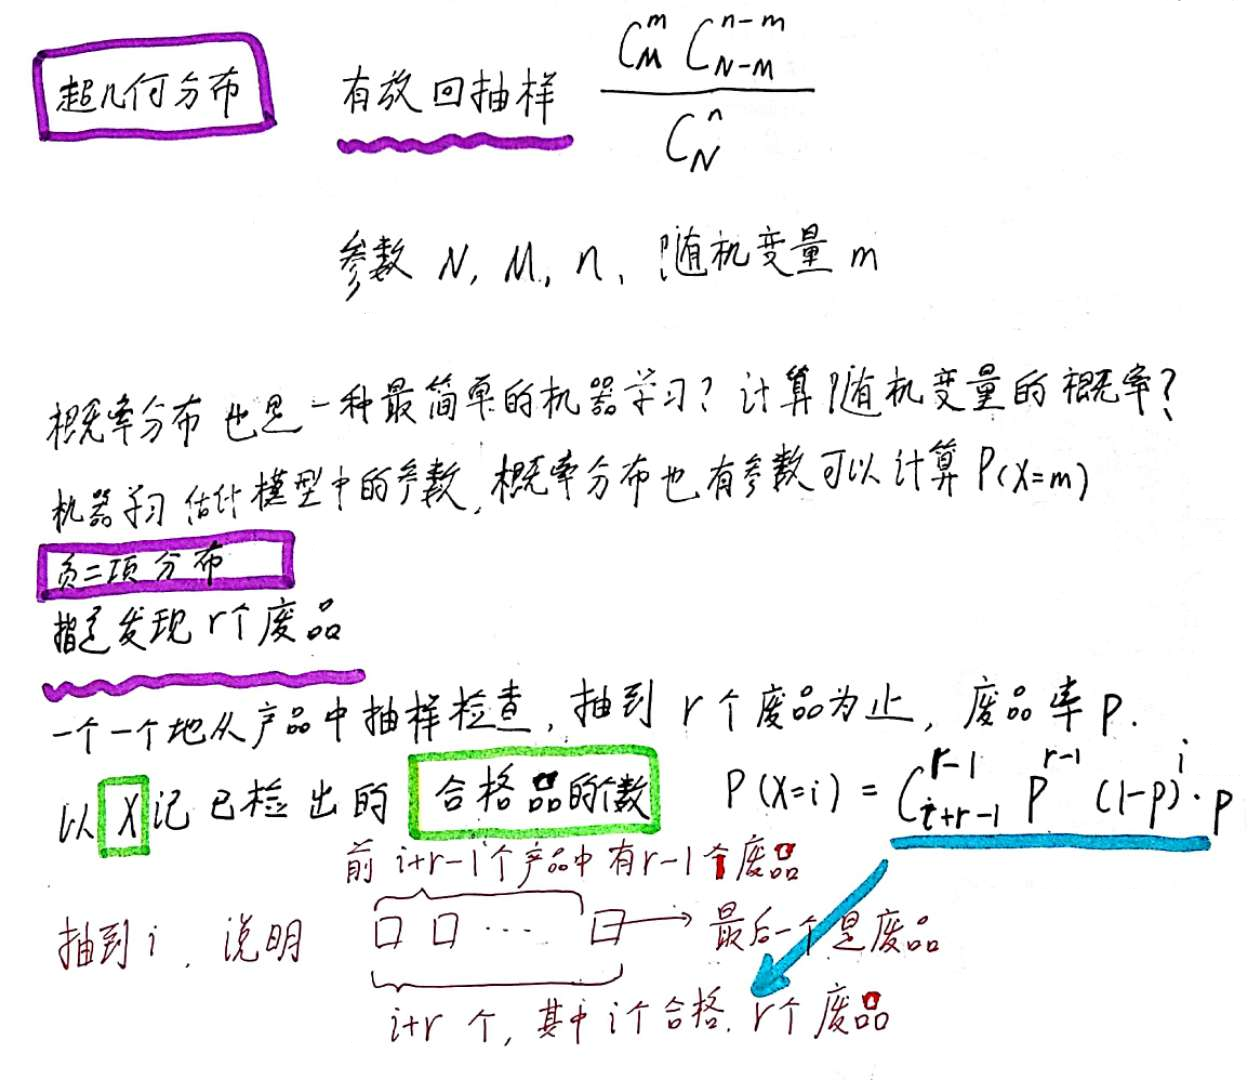 超几何分布 有放回抽样 $\frac{C_M^m C_{N-M}^{n-m}}{C_N^n}$
参数 N, M, n, 随机变量 m
概率分布也是一种最简单的机器学习? 计算随机变量的概率?
机器学习估计模型中的参数,概率分布也有参数可以计算 P(X=m)
负二项分布
指定发现 r个废品
一个一个地从产品中抽样检查, 抽到 r个废品为止, 废品率 p.
以 X 记已检出的 合格品的个数 $P(X=i) = C_{i+r-1}^{r-1} P^{r-1} (1-p)^i \cdot p$
前 i+r-1个产品中有r-1个废品
抽到 i, 说明 □ □ ... □ → 最后一个是废品
i+r 个, 其中 i个合格, r个废品